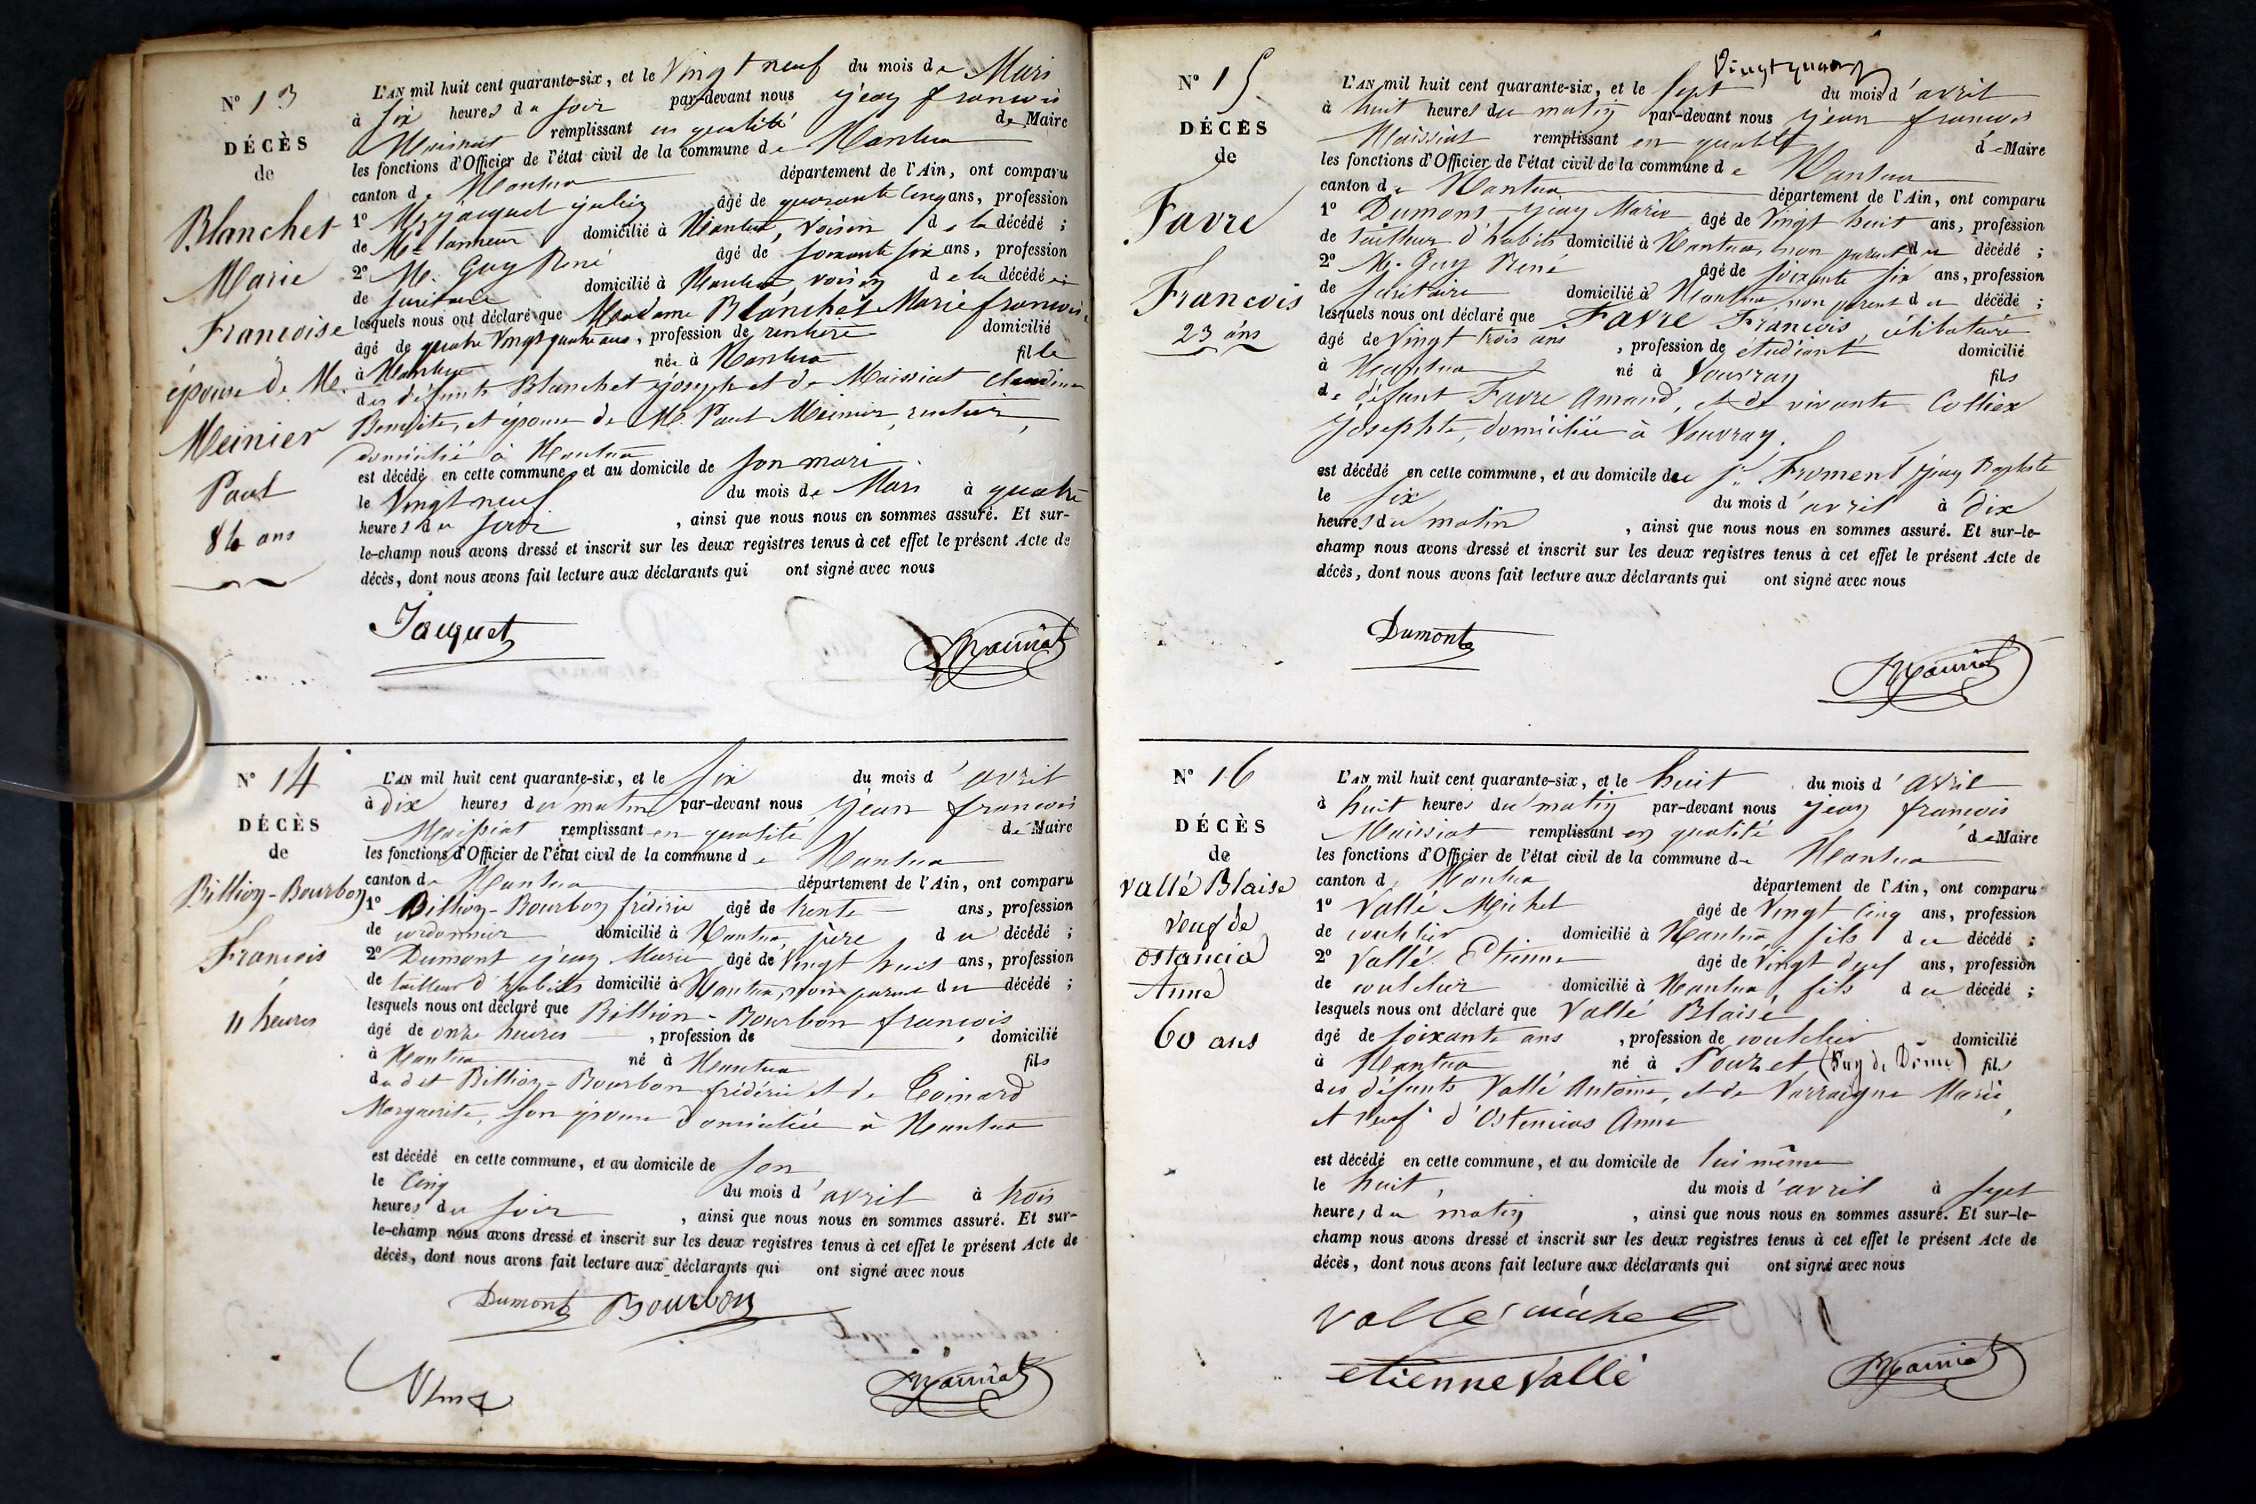 N° 13
DÉCÈS
de
Blanchet
Marie
Francoise
épouse de M.
Meinier
Paul
84 ans
L'AN mil huit cent quarante-six, et le Vingt neuf du mois de Mars
à six heures du soir par-devant nous jean francois
Maissiat remplissant en qualité de Maire
les fonctions d'Officier de l'état civil de la commune de Nantua
canton de Nantua département de l'Ain, ont comparu
1° Mr jacquet julien âgé de quarante cinq ans, profession
de domicilié à Nantua, voisin de la décédé ;
2° M. Guy René âgé de soixante six ans, profession
de domicilié à Nantua voisin de la décédé
lesquels nous ont déclaré que Madame Blanchet Marie francoise
âgé de quatre Vingt quatre ans, profession de rentière domicilié
à Nantua née à Nantua fille
des défunts Blanchet joseph et de Maissiat Claudine
Benoite, et épouse de Mr. Paul Meinier, rentier,
domicilié à Nantua
est décédé en cette commune, et au domicile de son mari
le Vingt neuf du mois de Mars à quatre
heures du soir, ainsi que nous nous en sommes assuré. Et sur-
le-champ nous avons dressé et inscrit sur les deux registres tenus à cet effet le présent Acte de
décès, dont nous avons fait lecture aux déclarants qui ont signé avec nous
Jacquet
Maissiat
N° 14
DÉCÈS
de
Billion-Bourbon
Francois
11 heures
L'AN mil huit cent quarante-six, et le six du mois d'avril
à dix heures du matin par-devant nous jean francois
Maissiat remplissant en qualité de Maire
les fonctions d'Officier de l'état civil de la commune de Nantua
canton de Nantua département de l'Ain, ont comparu
1° Billion-Bourbon fréderic âgé de trente ans, profession
de cordonnier domicilié à Nantua, père du décédé ;
2° Dumont jean Marie âgé de Vingt huit ans, profession
de tailleur d'habits domicilié à Nantua, non parent du décédé ;
lesquels nous ont déclaré que Billion-Bourbon francois
âgé de onze heures, profession de domicilié
à Nantua né à Nantua fils
du dit Billion-Bourbon fréderic et de Coinard
Marguerite, son épouse domiciliée à Nantua
est décédé en cette commune, et au domicile de son
le Cinq du mois d'avril à trois
heures du soir, ainsi que nous nous en sommes assuré. Et sur-
le-champ nous avons dressé et inscrit sur les deux registres tenus à cet effet le présent Acte de
décès, dont nous avons fait lecture aux déclarants qui ont signé avec nous
Dumont Bourbon
Maissiat
N° 15
DÉCÈS
de
Favre
Francois
23 ans
L'AN mil huit cent quarante-six, et le sept du mois d'avril
à huit heures du matin par-devant nous jean francois
Maissiat remplissant en qualité de Maire
les fonctions d'Officier de l'état civil de la commune de Nantua
canton de Nantua département de l'Ain, ont comparu
1° Dumont jean Marie âgé de Vingt huit ans, profession
de tailleur d'habits domicilié à Nantua, non parent du décédé ;
2° Mr. Guy René âgé de soixante six ans, profession
de domicilié à Nantua non parent du décédé ;
lesquels nous ont déclaré que Favre Francois, célibataire
âgé de Vingt trois ans, profession de étudiant domicilié
à Nantua né à Vouvray fils
de défunt Favre Amand, et de vivante Collier
Josephte, domiciliée à Vouvray.
est décédé en cette commune, et au domicile de Sr. Froment jean Baptiste
le six du mois d'avril à dix
heures du matin, ainsi que nous nous en sommes assuré. Et sur-le-
champ nous avons dressé et inscrit sur les deux registres tenus à cet effet le présent Acte de
décès, dont nous avons fait lecture aux déclarants qui ont signé avec nous
Dumont
Maissiat
N° 16
DÉCÈS
de
Vallé Blaise
Veuf de
Ostancia
Anne
60 ans
L'AN mil huit cent quarante-six, et le huit du mois d'avril
à huit heures du matin par-devant nous jean francois
Maissiat remplissant en qualité de Maire
les fonctions d'Officier de l'état civil de la commune de Nantua
canton de Nantua département de l'Ain, ont comparu
1° Vallé Michel âgé de Vingt Cinq ans, profession
de coutelier domicilié à Nantua fils du décédé ;
2° Vallé Etienne âgé de Vingt deux ans, profession
de coutelier domicilié à Nantua, fils du décédé ;
lesquels nous ont déclaré que Vallé Blaise
âgé de soixante ans, profession de coutelier domicilié
à Nantua né à (Puy de Dôme) fils
des défunts Vallé Antoine, et de Varraigne Marie,
et Veuf d'Ostencias Anne
est décédé en cette commune, et au domicile de lui même
le huit du mois d'avril à sept
heures du matin, ainsi que nous nous en sommes assuré. Et sur-le-
champ nous avons dressé et inscrit sur les deux registres tenus à cet effet le présent Acte de
décès, dont nous avons fait lecture aux déclarants qui ont signé avec nous
Vallé michel
etienne Vallé
Maissiat